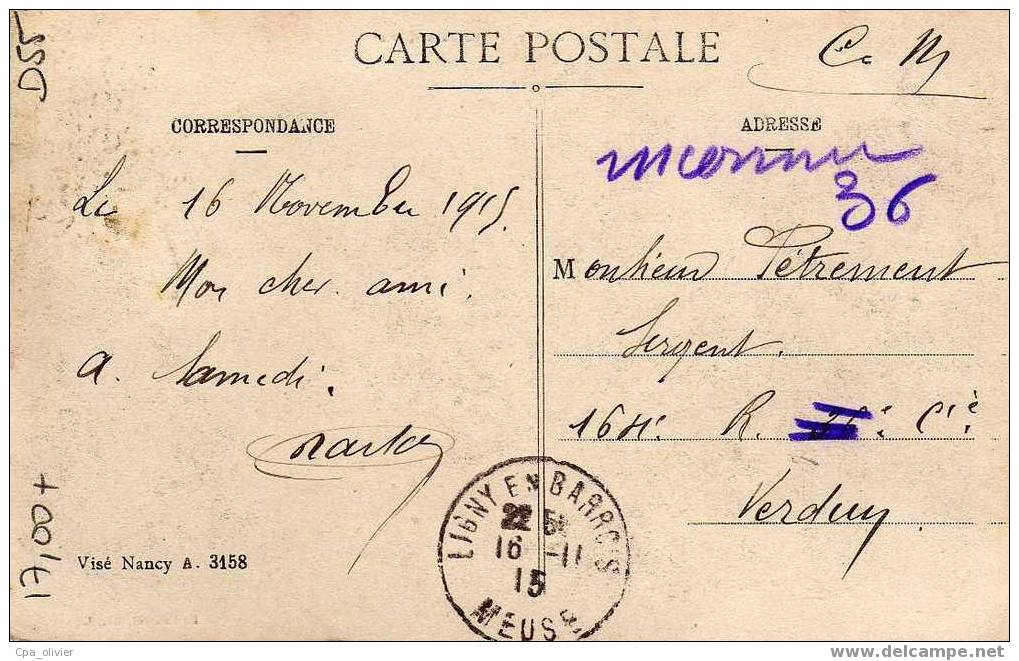 D55
CARTE POSTALE
C. M
CORRESPONDANCE
ADRESSE
inconnu
36
Le 16 November 1915.
Mon cher ami.
a. Samedi.
Monsieur Pétrement
Sergent.
164e. R. 36e. Cie.
Verdun.
LIGNY EN BARROIS
16 - 11
15
MEUSE
Visé Nancy A. 3158
17/00 +
Cpa_olivier
www.delcampe.net